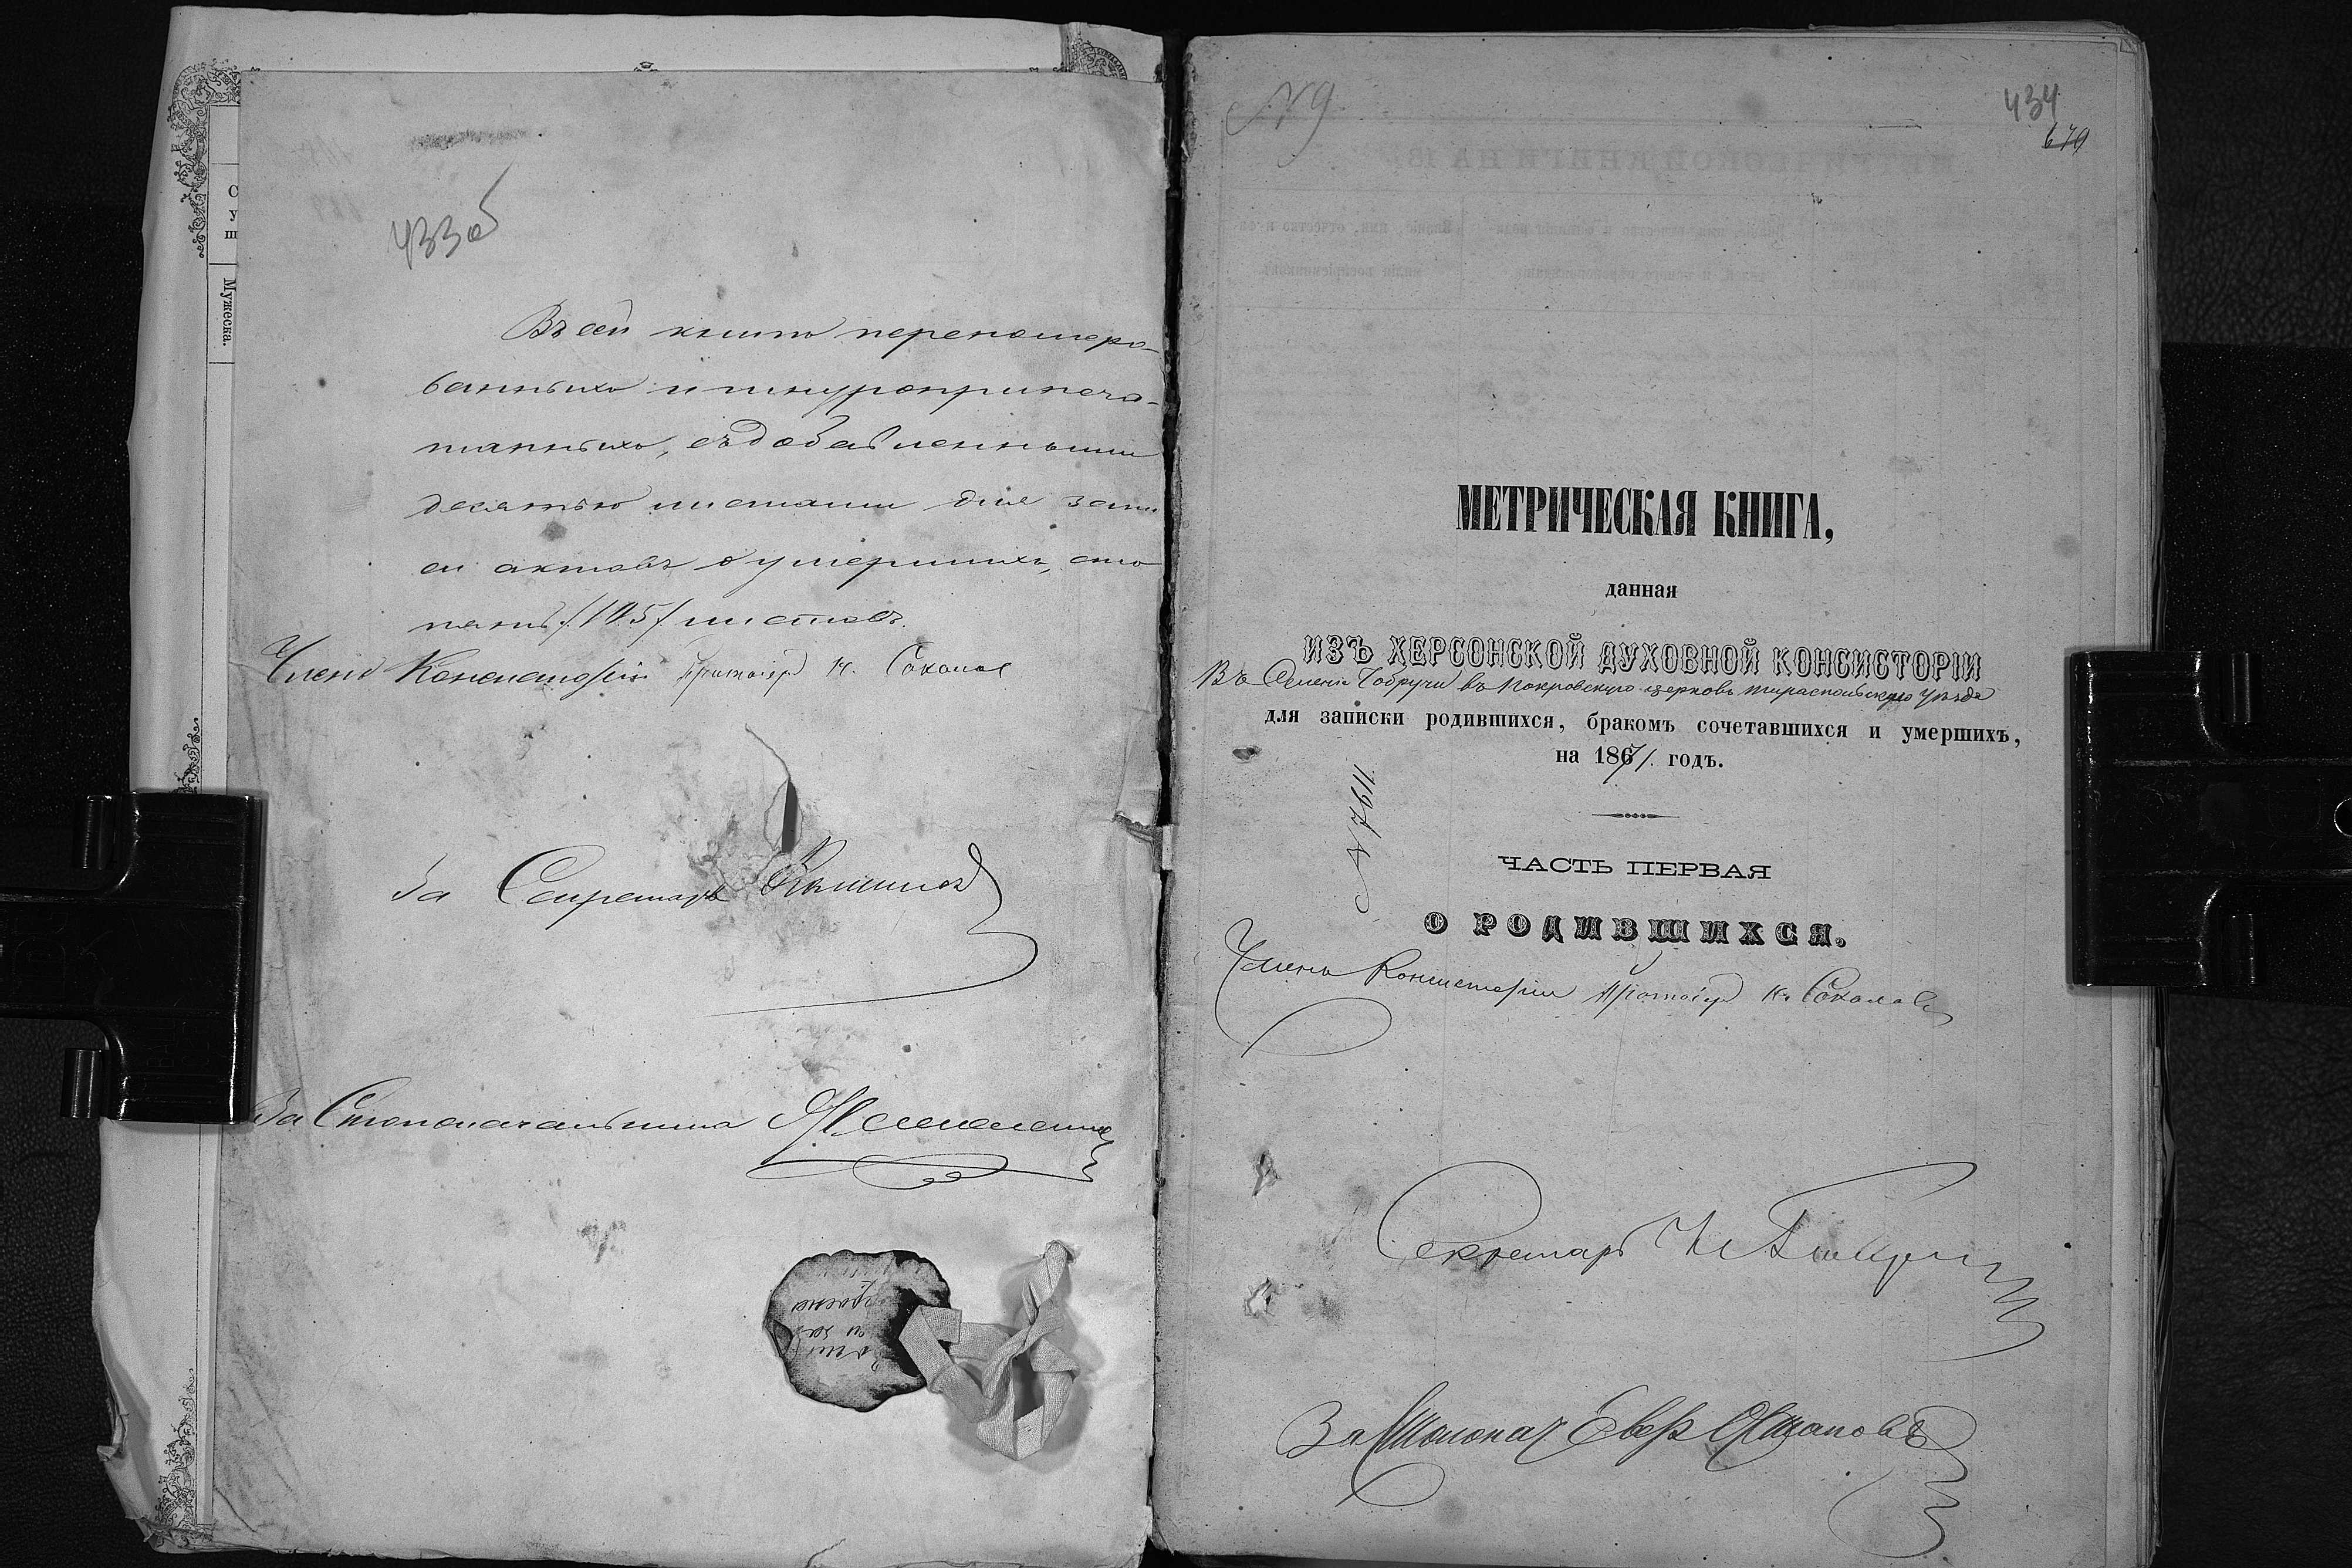 433об
Въ сей книгѣ перенумеро-
ванныхъ и шнуропripеча-
танныхъ, съ добавленными
десятью листами для запи
си актовъ о умершихъ, сто
пять /105/ листовъ.
Членъ Консисторіи Протоіер. Н. Соколов
За Секретаря
За Столоначальника
Мужеска.
№ 9
434
679
МЕТРИЧЕСКАЯ КНИГА,
данная
ИЗЪ ХЕРСОНСКОЙ ДУХОВНОЙ КОНСИСТОРІИ
Въ Селеніе Чобручи въ Покровскую церковь Тираспольскаго Уѣзда
для записки родившихся, бракомъ сочетавшихся и умершихъ,
на 1871 годъ.
№ 7611
ЧАСТЬ ПЕРВАЯ
О РОДИВШИХСЯ.
Членъ Консисторіи Протоіер. Н. Соколовъ
Секретарь
За Столонач